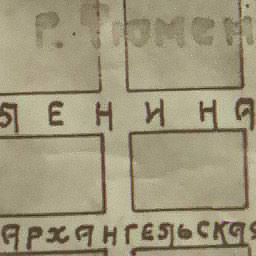 Р. Тюмен
ЛЕНИНА
АРХАНГЕЛЬСКАЯ